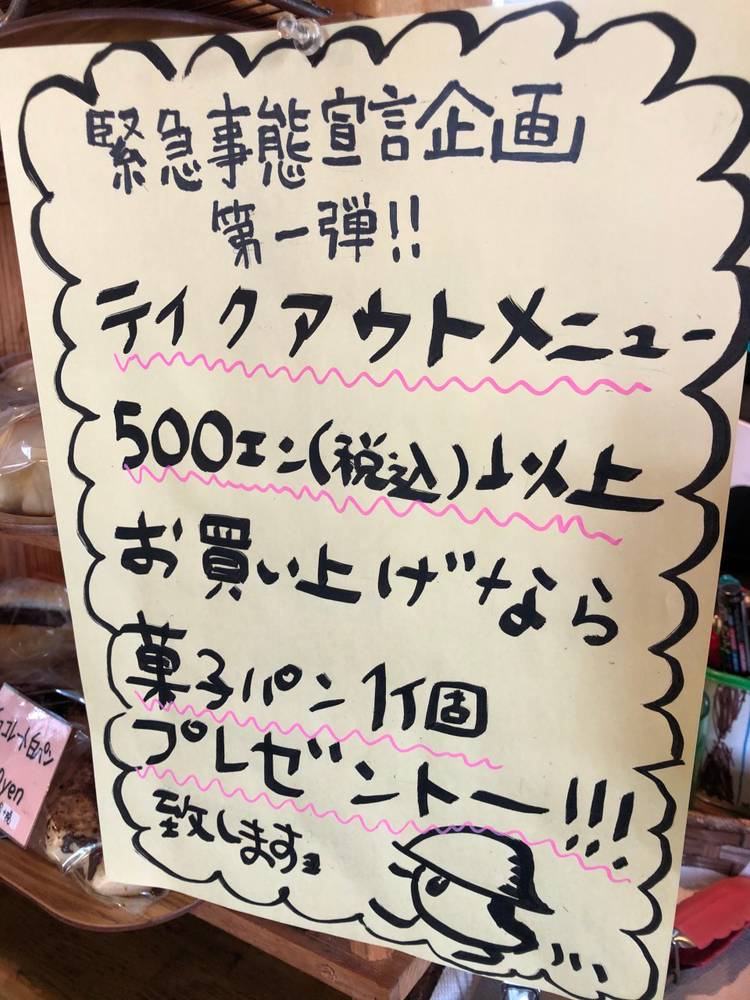 緊急事態宣言企画
第一弾!!
テイクアウトメニュー
500エン(税込)以上
お買い上げなら
菓子パン1個
プレゼントー!!!
致します
yen